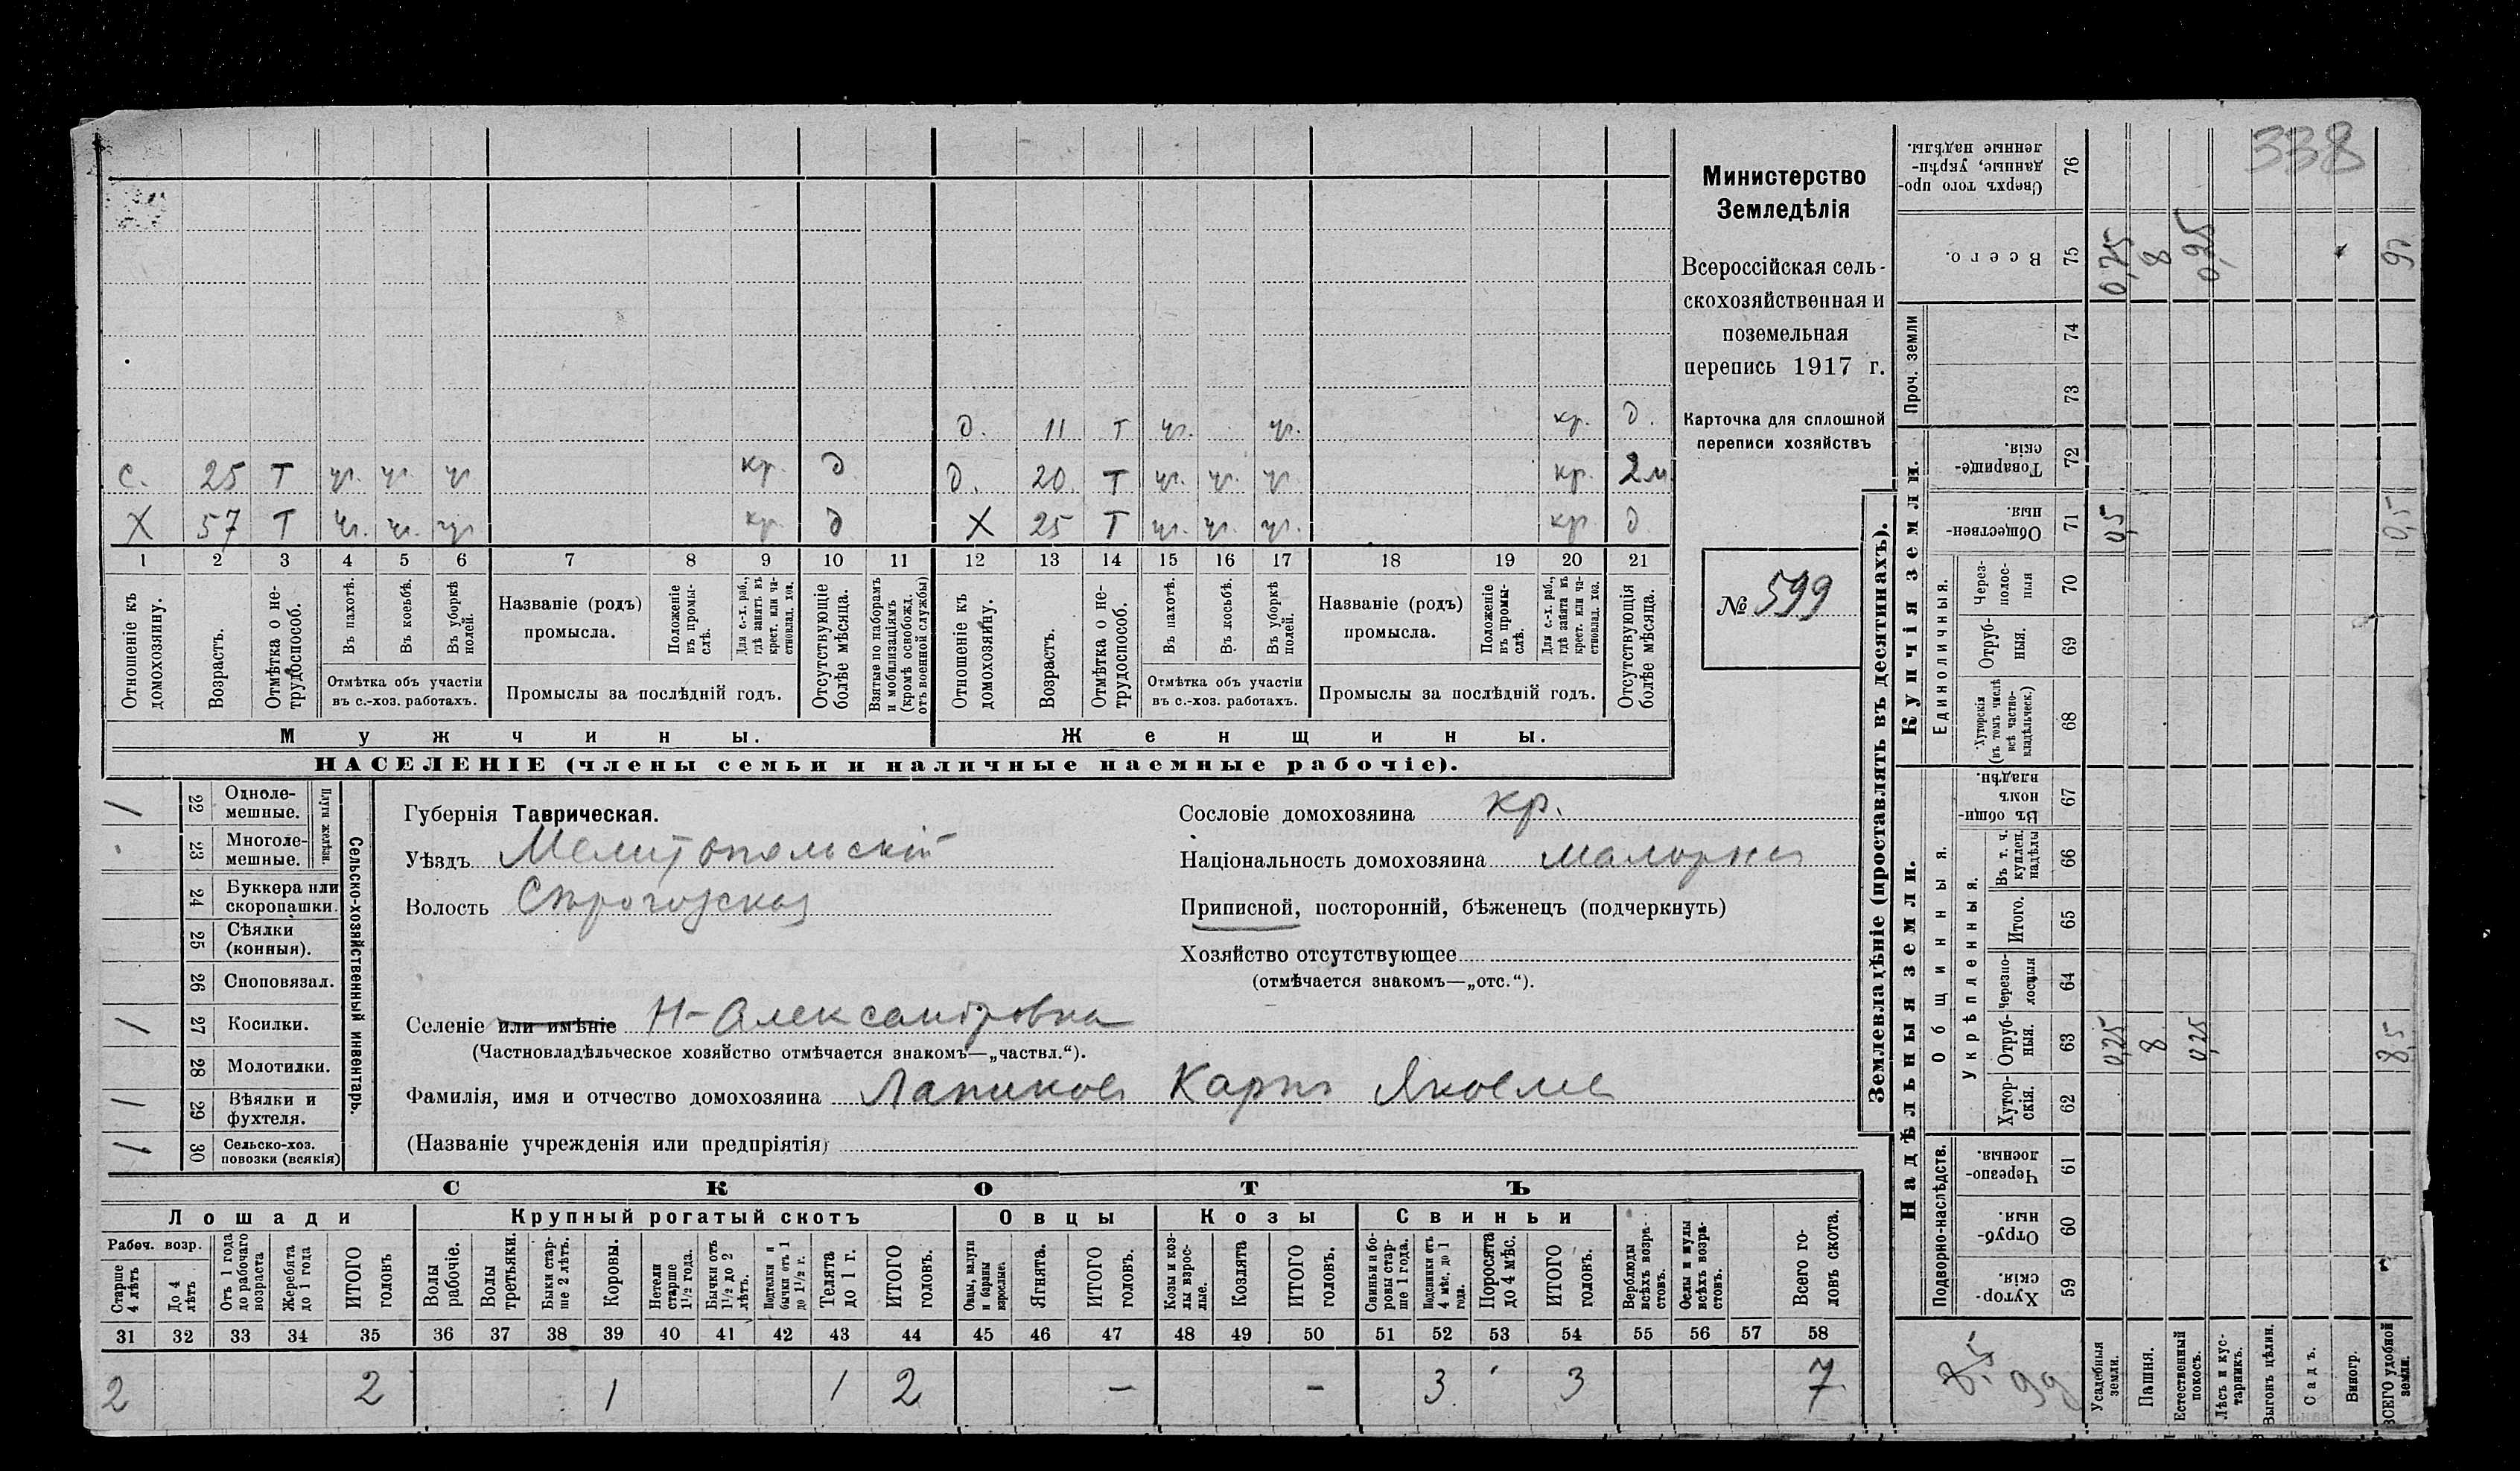 338
Министерство
Земледѣлія
Всероссійская сель-
скохозяйственная и
поземельная
перепись 1917 г.
Карточка для сплошной
переписи хозяйствъ
№ 599
д. 11 Т чг. чг. кр. д.
с. 25 Т чг. чг. чг. кр. д д. 20 Т чг. чг. чг. кр. 2 м
Х 57 Т чг. чг. чг. кр. д Х 25 Т чг. чг. чг. кр д
1 2 3 4 5 6 7 8 9 10 11 12 13 14 15 16 17 18 19 20 21
Отношеніе къ домохозяину.
Возрастъ.
Отмѣтка о не-трудоспособ.
Въ пахотѣ.
Въ косьбѣ.
Въ уборкѣ полей.
Отмѣтка объ участіи въ с.-хоз. работахъ.
Названіе (родъ) промысла.
Положеніе въ промы-слѣ.
Для с.-х. раб., гдѣ занятъ въ крест. или ча-стновлад. хоз.
Промыслы за послѣдній годъ.
Отсутствующіе болѣе мѣсяца.
Взятые по наборамъ и мобилизаціямъ (кромѣ освобожд. отъ военной службы)
Отношеніе къ домохозяину.
Возрастъ.
Отмѣтка о не-трудоспособ.
Въ пахотѣ.
Въ косьбѣ.
Въ уборкѣ полей.
Отмѣтка объ участіи въ с.-хоз. работахъ.
Названіе (родъ) промысла.
Положеніе въ промы-слѣ.
Для с.-х. раб., гдѣ занята въ крест. или ча-стновлад. хоз.
Промыслы за послѣдній годъ.
Отсутствующія болѣе мѣсяца.
Мужчины. Женщины.
НАСЕЛЕНІЕ (члены семьи и наличные наемные рабочіе).
/ 22 Одноле-мешные.
23 Многоле-мешные.
Плуги желѣзн.
24 Буккера или скоропашки.
25 Сѣялки (конныя).
26 Сноповязал.
/ 27 Косилки.
28 Молотилки.
/ 29 Вѣялки и фухтеля.
/ 30 Сельско-хоз. повозки (всякія)
Сельско-хозяйственный инвентарь.
Губернія Таврическая.
Уѣздъ Мелитопольскій
Волость Сѣрогозская
Селеніе или имѣніе Н-Александровка
(Частновладѣльческое хозяйство отмѣчается знакомъ—„частвл.“).
Фамилія, имя и отчество домохозяина Лапиков Карпъ Яковле
(Названіе учрежденія или предпріятія)
Сословіе домохозяина кр.
Національность домохозяина
Приписной, посторонній, бѣженецъ (подчеркнуть)
Хозяйство отсутствующее
(отмѣчается знакомъ—„отс.“).
СКОТЪ
Лошади Крупный рогатый скотъ Овцы Козы Свиньи
Рабоч. возр.
Старше 4 лѣтъ
До 4 лѣтъ
Отъ 1 года до рабочаго возраста
Жеребята до 1 года
ИТОГО головъ
Волы рабочіе.
Волы третьяки.
Быки стар-ше 2 лѣтъ.
Коровы.
Нетели старше 1½ года.
Бычки отъ 1½ до 2 лѣтъ.
Подтелки и бычки отъ 1 до 1½ г.
Телята до 1 г.
ИТОГО головъ.
Овцы, валухи и бараны взрослые.
Ягнята.
ИТОГО головъ.
Козы и коз-лы взрос-лые.
Козлята
ИТОГО головъ.
Свиньи и бо-ровы стар-ше 1 года.
Подсвинки отъ 4 мѣс. до 1 года.
Поросята до 4 мѣс.
ИТОГО головъ.
Верблюды всѣхъ возра-стовъ.
Ослы и мулы всѣхъ возра-стовъ.
Всего го-ловъ скота.
31 32 33 34 35 36 37 38 39 40 41 42 43 44 45 46 47 48 49 50 51 52 53 54 55 56 57 58
2 2 1 1 2 — — 3 3 7
Землевладѣніе (проставлять въ десятинахъ).
Надѣльныя земли. Купчія земли.
Подворно-наслѣдств.
Общинныя.
Укрѣпленныя.
Единоличныя.
Проч. земли
59 Хутор-скія.
60 Отруб-ныя.
61 Черезпо-лосныя.
62 Хутор-скія.
63 Отруб-ныя.
64 Черезпо-лосныя
65 Итого.
66 Въ т. ч. куплен. надѣлы
67 Въ общин-номъ владѣн.
68 Хуторскія (въ томъ числѣ всѣ частно-владѣльческ.)
69 Отруб-ныя.
70 Через-полос-ныя
71 Обществен-ныя.
72 Товарище-скія.
73
74
75 Всего.
76 Сверхъ того про-данные, укрѣп-ленные надѣлы.
Усадебныя земли. 0,25 0,5 0,75
Пашня. 8 8
Естественный покосъ. 0,25 0,25
Лѣсъ и кус-тарникъ.
Выгонъ цѣлин.
Садъ.
Виногр.
ВСЕГО удобной земли. 8,5 0,5